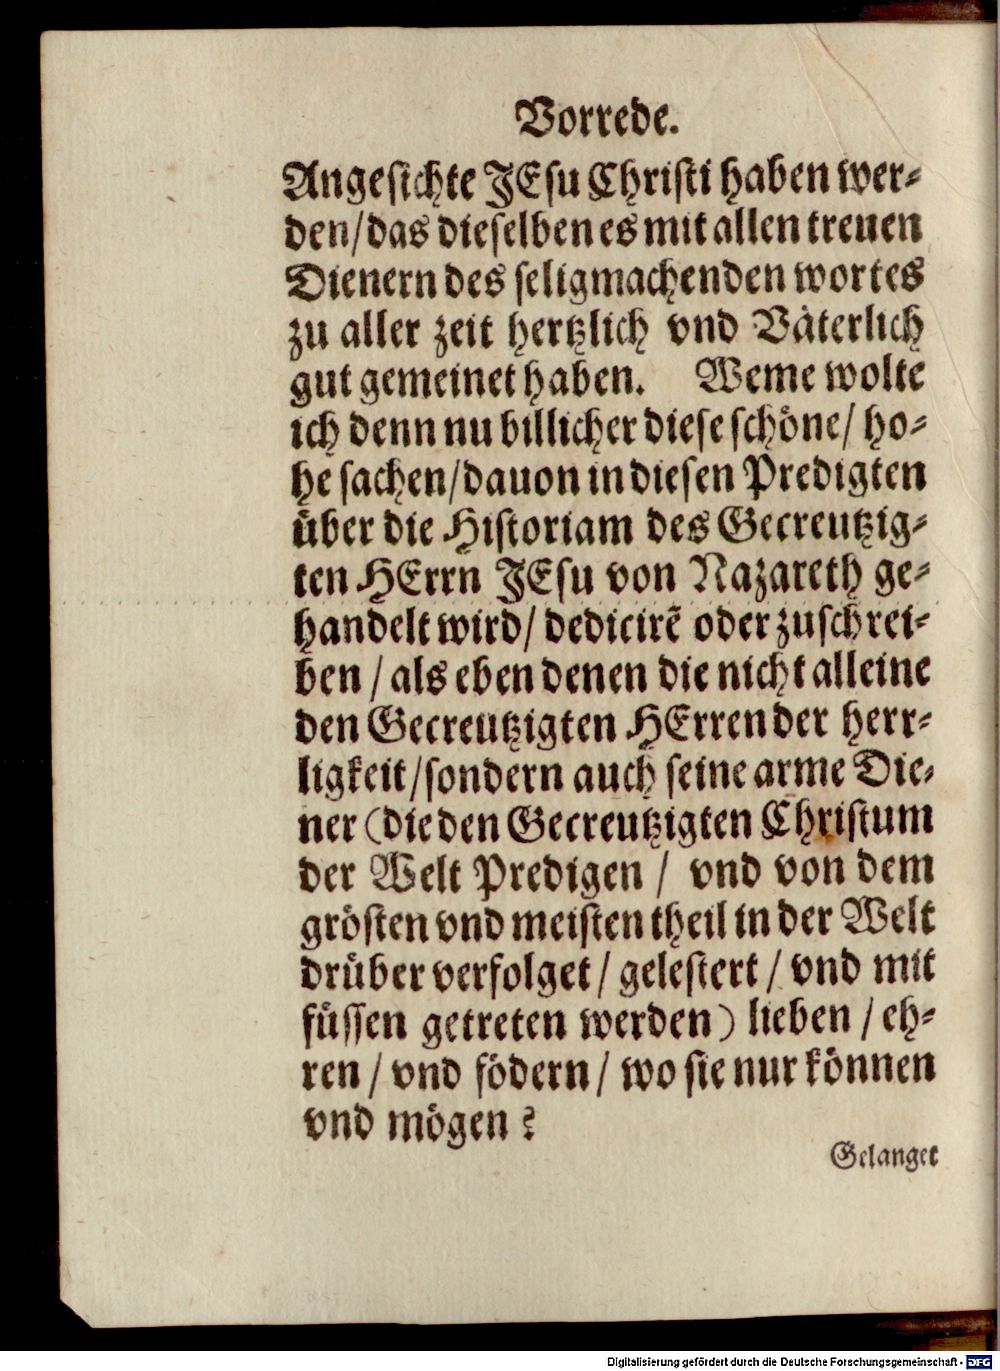 Vorrede.
Angesichte JEsu Christi haben wer-
den/das dieselben es mit allen treuen
Dienern des seligmachenden wortes
zu aller zeit hertzlich vnd Väterlich
gut gemeinet haben. Weme wolte
ich denn nu billicher diese schöne/ ho-
he sachen/dauon in diesen Predigten
über die Historiam des Gecreutzig-
ten HErrn JEsu von Nazareth ge-
handelt wird/ dedicirẽ oder zuschrei-
ben / als eben denen die nicht alleine
den Gecreutzigten HErren der herr-
ligkeit/sondern auch seine arme Die-
ner (die den Gecreutzigten Christum
der Welt Predigen / vnd von dem
grösten vnd meisten theil in der Welt
drüber verfolget / gelestert / vnd mit
füssen getreten werden) lieben / eh-
ren / vnd födern / wo sie nur können
vnd mögen ?
Gelanget
Digitalisierung gefördert durch die Deutsche Forschungsgemeinschaft - DFG